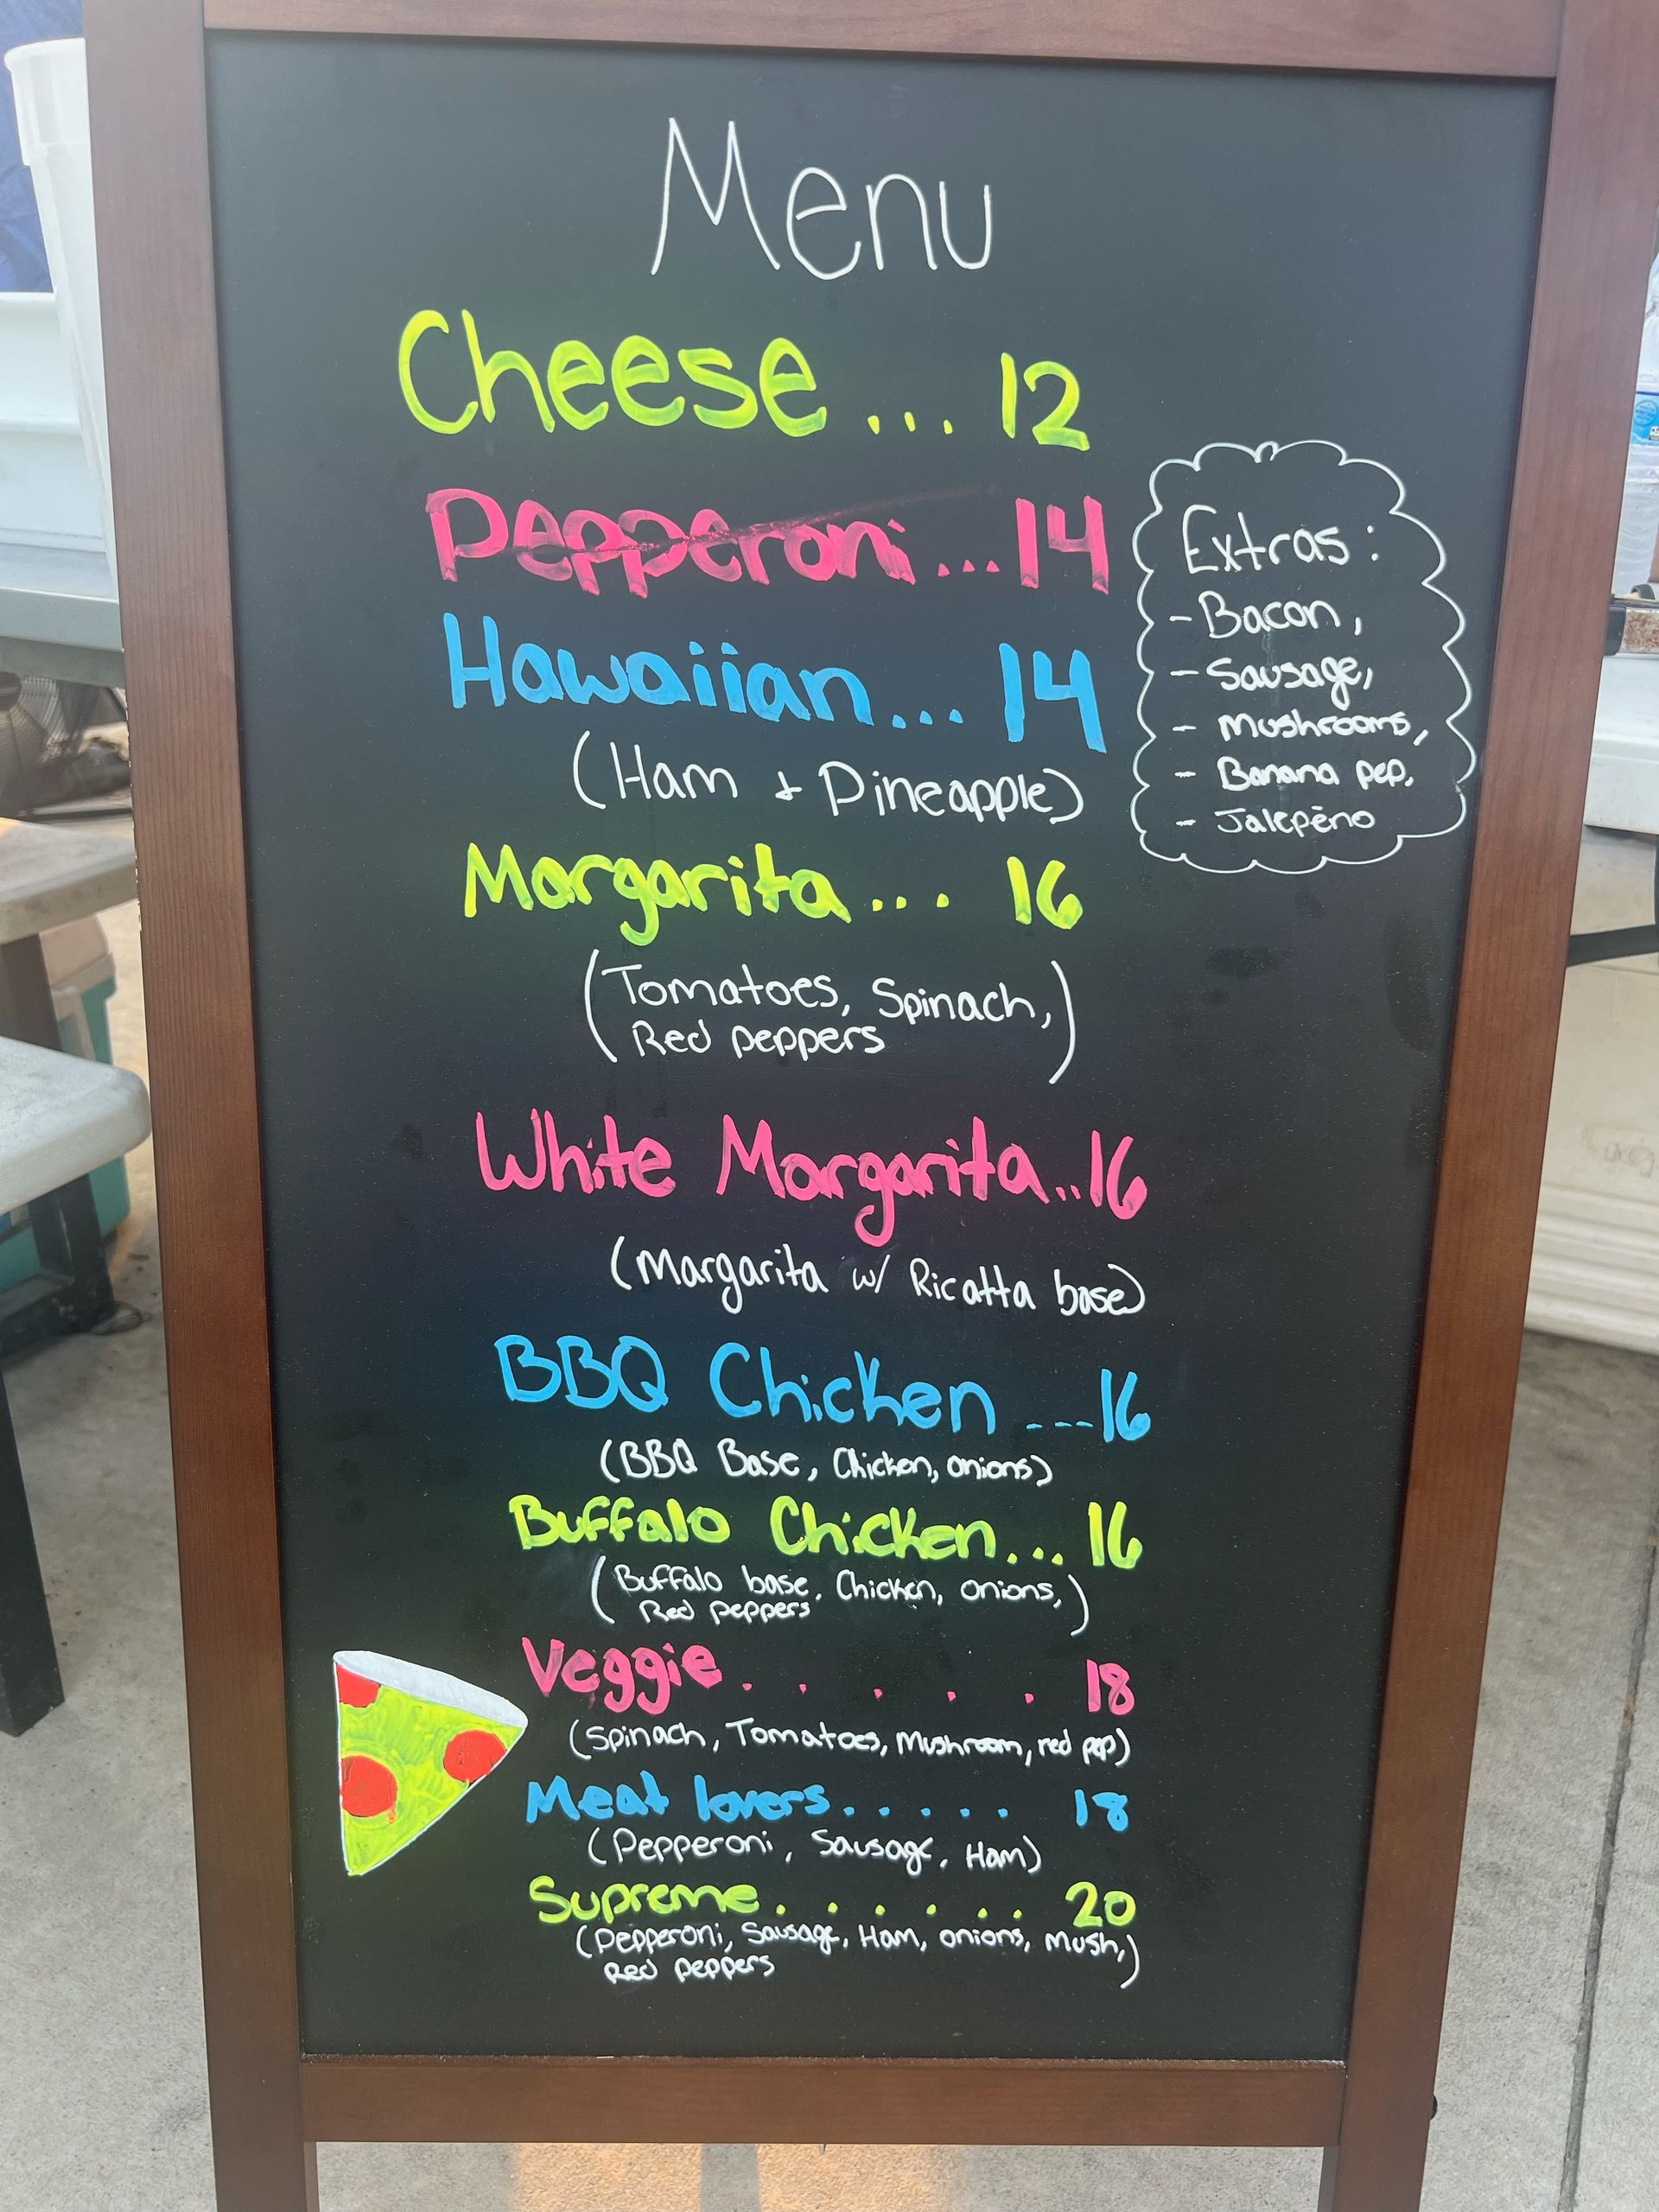 Menu
Cheese ... 12
Pepperoni ... 14
Hawaiian ... 14
(Ham + Pineapple)
Extras:
- Bacon,
- Sausage,
- Mushrooms,
- Banana pep,
- Jalepēno
Margarita ... 16
(Tomatoes, Spinach,
Red peppers)
White Margarita .. 16
(Margarita w/ Ricatta base)
BBQ Chicken ---16
(BBQ Base, Chicken, onions)
Buffalo Chicken... 16
(Buffalo base, Chicken, onions,
Red peppers)
Veggie . . . . . 18
(Spinach, Tomatoes, Mushroom, red pep)
Meat lovers . . . . . 18
(Pepperoni, Sausage, Ham)
Supreme . . . . . . 20
(Pepperoni, Sausage, Ham, onions, mush,
Red peppers)